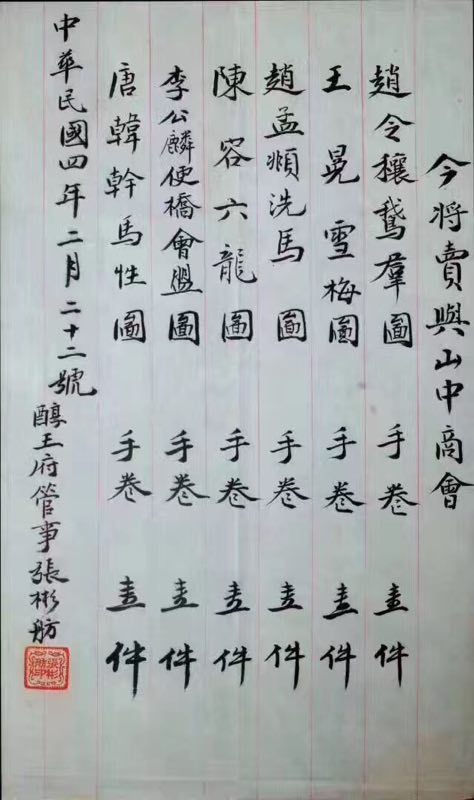 今將賣與山中商會
趙令穰鵝羣圖 手卷 壹件
王晃雪梅圖 手卷 壹件
趙孟頫洗馬圖 手卷 壹件
陳容六龍圖 手卷 壹件
李公麟便橋會盟圖 手卷 壹件
唐韓幹馬性圖 手卷 壹件
中華民國四年二月二十二號
醇王府管事張彬舫